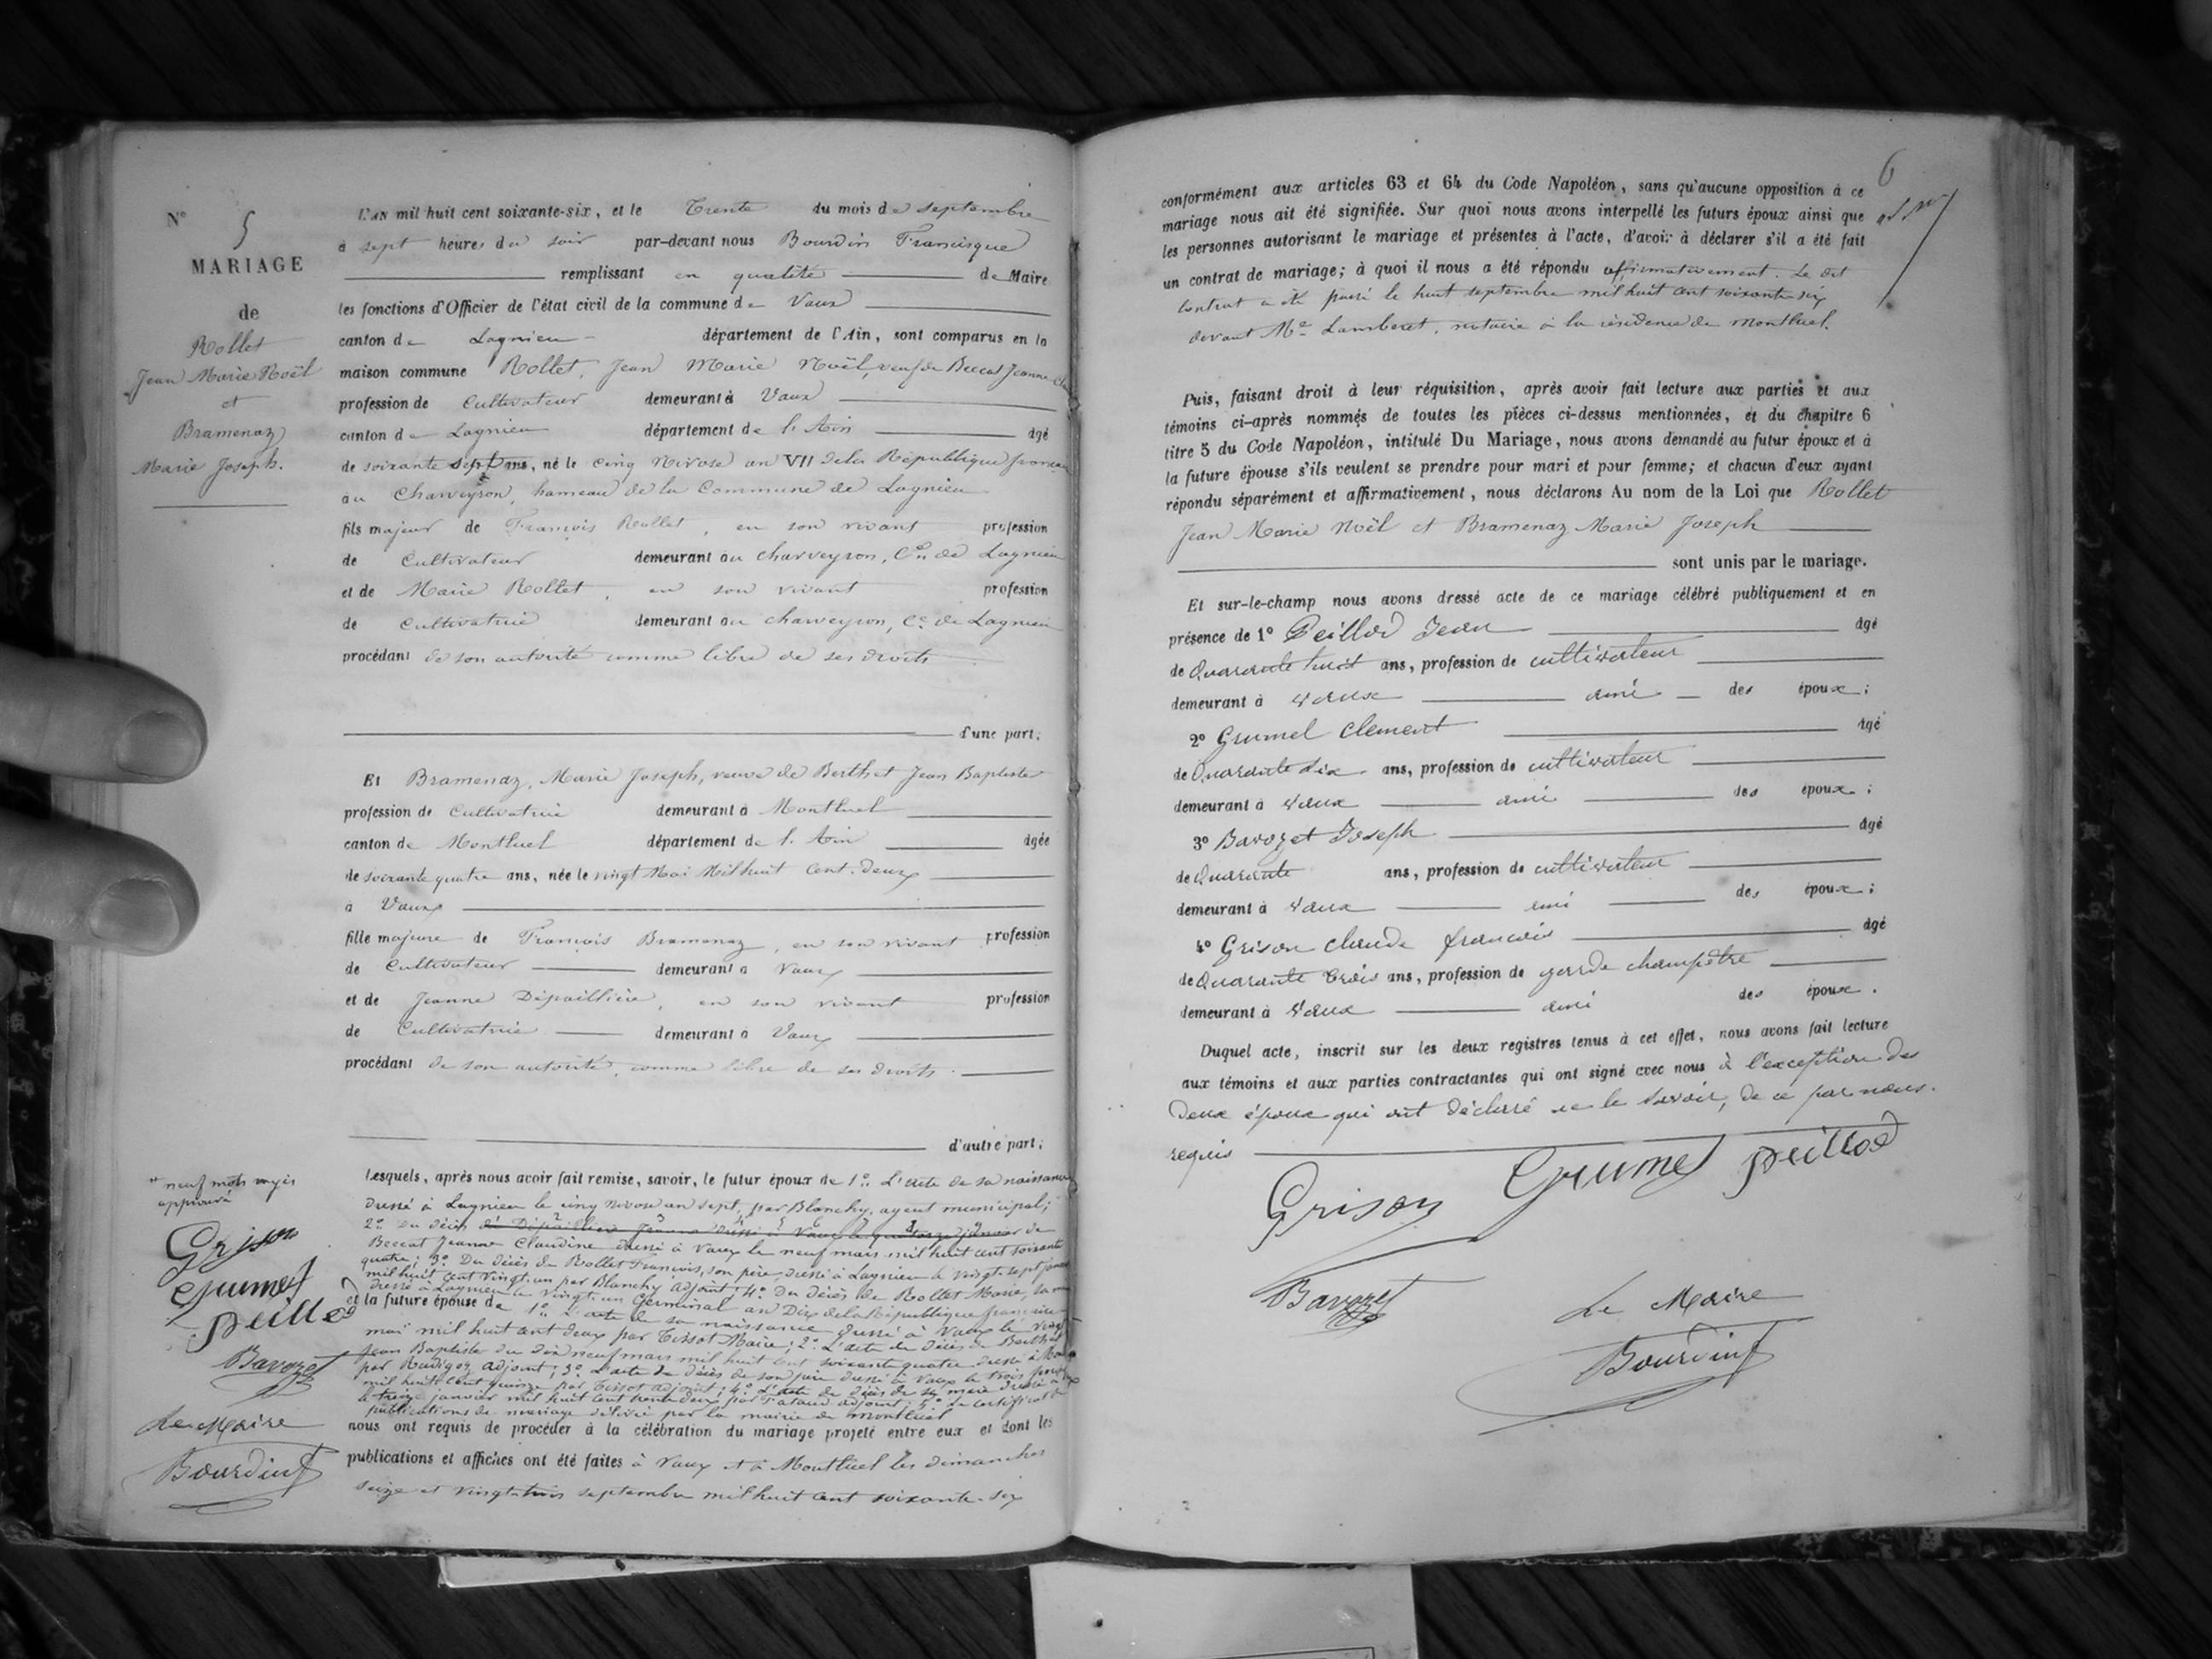 N° 5
MARIAGE
de
Rollet
Jean Marie Noël
et
Bramenaz
Marie Joseph.
L'AN mil huit cent soixante-six, et le Trente du mois de septembre
à sept heures du soir par-devant nous Bourdin Francisque
remplissant en qualité de Maire
les fonctions d'Officier de l'état civil de la commune de Vaux
canton de Lagnieu département de l'Ain, sont comparus en la
maison commune Rollet, Jean Marie Noël, veuf de Beccat Jeanne
profession de Cultivateur demeurant à Vaux
canton de Lagnieu département de l'Ain âgé
de soixante sept ans, né le cinq Nivose an VII de la République
au Charveyron, hameau de la Commune de Lagnieu
fils majeur de François Rollet, en son vivant profession
de Cultivateur demeurant au charveyron, Cn de Lagnieu
et de Marie Rollet, en son vivant profession
de Cultivatrice demeurant au charveyron, Ce de Lagnieu
procédant de son autorité comme libre de ses droits
d'une part;
Et Bramenaz, Marie Joseph, veuve de Berthet Jean Baptiste
profession de Cultivatrice demeurant à Montluel
canton de Montluel département de l'Ain âgée
de soixante quatre ans, née le vingt Mai Mil huit Cent. Deux
à Vaux
fille majeure de François Bramenaz, en son vivant profession
de Cultivateur demeurant à Vaux
et de Jeanne Dépaillière, en son vivant profession
de Cultivatrice demeurant à Vaux
procédant de son autorité, comme libre de ses droits.
d'autre part;
neuf mots rayés
approuvé
Grison
Grumel
Peillod
Bavozet
Le Maire
Bourdin f
Lesquels, après nous avoir fait remise, savoir, le futur époux de 1°. L'acte de sa naissance
dressé à Lagnieu le cinq nivose an sept, par Blanchy, agent municipal;
2° Du décès de Dépaillière Jeanne dressé à Vaux le quatorze janvier de
Beccat Jeanne Claudine dressé à Vaux le neuf mars mil huit cent soixante
quatre; 3° Du décès de Rollet François, son père, dressé à Lagnieu le vingt-sept
mil huit cent vingt-un par Blanchy, adjoint; 4° Du décès de Rollet Marie, sa
dressé à Lagnieu le vingt-un Germinal an Dix de la République française
et la future épouse de 1° L'acte de sa naissance dressé à Vaux le vingt
mai mil huit cent deux par Tissot Maire; 2° L'acte de décès de Berthet
Jean Baptiste du dix neuf mars mil huit cent soixante quatre dressé à
par adjoint; 3° L'acte de décès de son père dressé à Vaux le trois
mil huit cent quinze par Tissot adjoint; 4° L'acte de décès de sa mère dressé à
le treize janvier mil huit cent trente deux par adjoint; 5° Le certificat de
publications de mariage délivré par la mairie de Montluel
nous ont requis de procéder à la célébration du mariage projeté entre eux et dont les
publications et affiches ont été faites à Vaux et à Montluel les dimanches
seize et vingt-trois septembre mil huit cent soixante-six
6
conformément aux articles 63 et 64 du Code Napoléon, sans qu'aucune opposition à ce
mariage nous ait été signifiée. Sur quoi nous avons interpellé les futurs époux ainsi que
les personnes autorisant le mariage et présentes à l'acte, d'avoir à déclarer s'il a été fait
un contrat de mariage; à quoi il nous a été répondu affirmativement. Le dit
contrat a été passé le huit septembre mil huit cent soixante six
devant Me Lamberet, notaire à la résidence de Montluel.
Puis, faisant droit à leur réquisition, après avoir fait lecture aux parties et aux
témoins ci-après nommés de toutes les pièces ci-dessus mentionnées, et du chapitre 6
titre 5 du Code Napoléon, intitulé Du Mariage, nous avons demandé au futur époux et à
la future épouse s'ils veulent se prendre pour mari et pour femme; et chacun d'eux ayant
répondu séparément et affirmativement, nous déclarons Au nom de la Loi que Rollet
Jean Marie Noël et Bramenaz Marie Joseph
sont unis par le mariage.
Et sur-le-champ nous avons dressé acte de ce mariage célébré publiquement et en
présence de 1° Peillod Jean âgé
de Quarante huit ans, profession de cultivateur
demeurant à Vaux ami des époux;
2° Grumel Clement âgé
de Quarante six ans, profession de cultivateur
demeurant à Vaux ami des époux;
3° Bavozet Joseph âgé
de Quarante ans, profession de cultivateur
demeurant à Vaux ami des époux;
4° Grison Claude françois âgé
de Quarante trois ans, profession de garde champêtre
demeurant à Vaux ami des époux.
Duquel acte, inscrit sur les deux registres tenus à cet effet, nous avons fait lecture
aux témoins et aux parties contractantes qui ont signé avec nous à l'exception des
deux époux qui ont déclaré ne le savoir, de ce par nous.
requis
Grison Grumel Peillod
Bavozet
Le Maire
Bourdin f